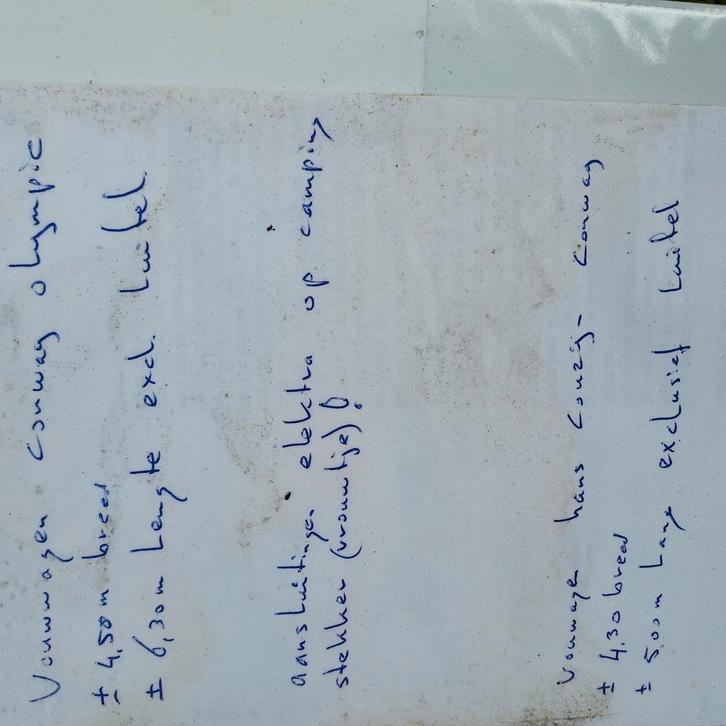 Vouwwagen Conway Olympic
± 4,50m breed
± 6,30m Lengte excl. Luifel
aansluitingen elektra op camping
stekker (vrouwtje)!
Vouwwagen hans Conzig - Conway
± 4.30 breed
± 5.00m Lang exclusief Luifel